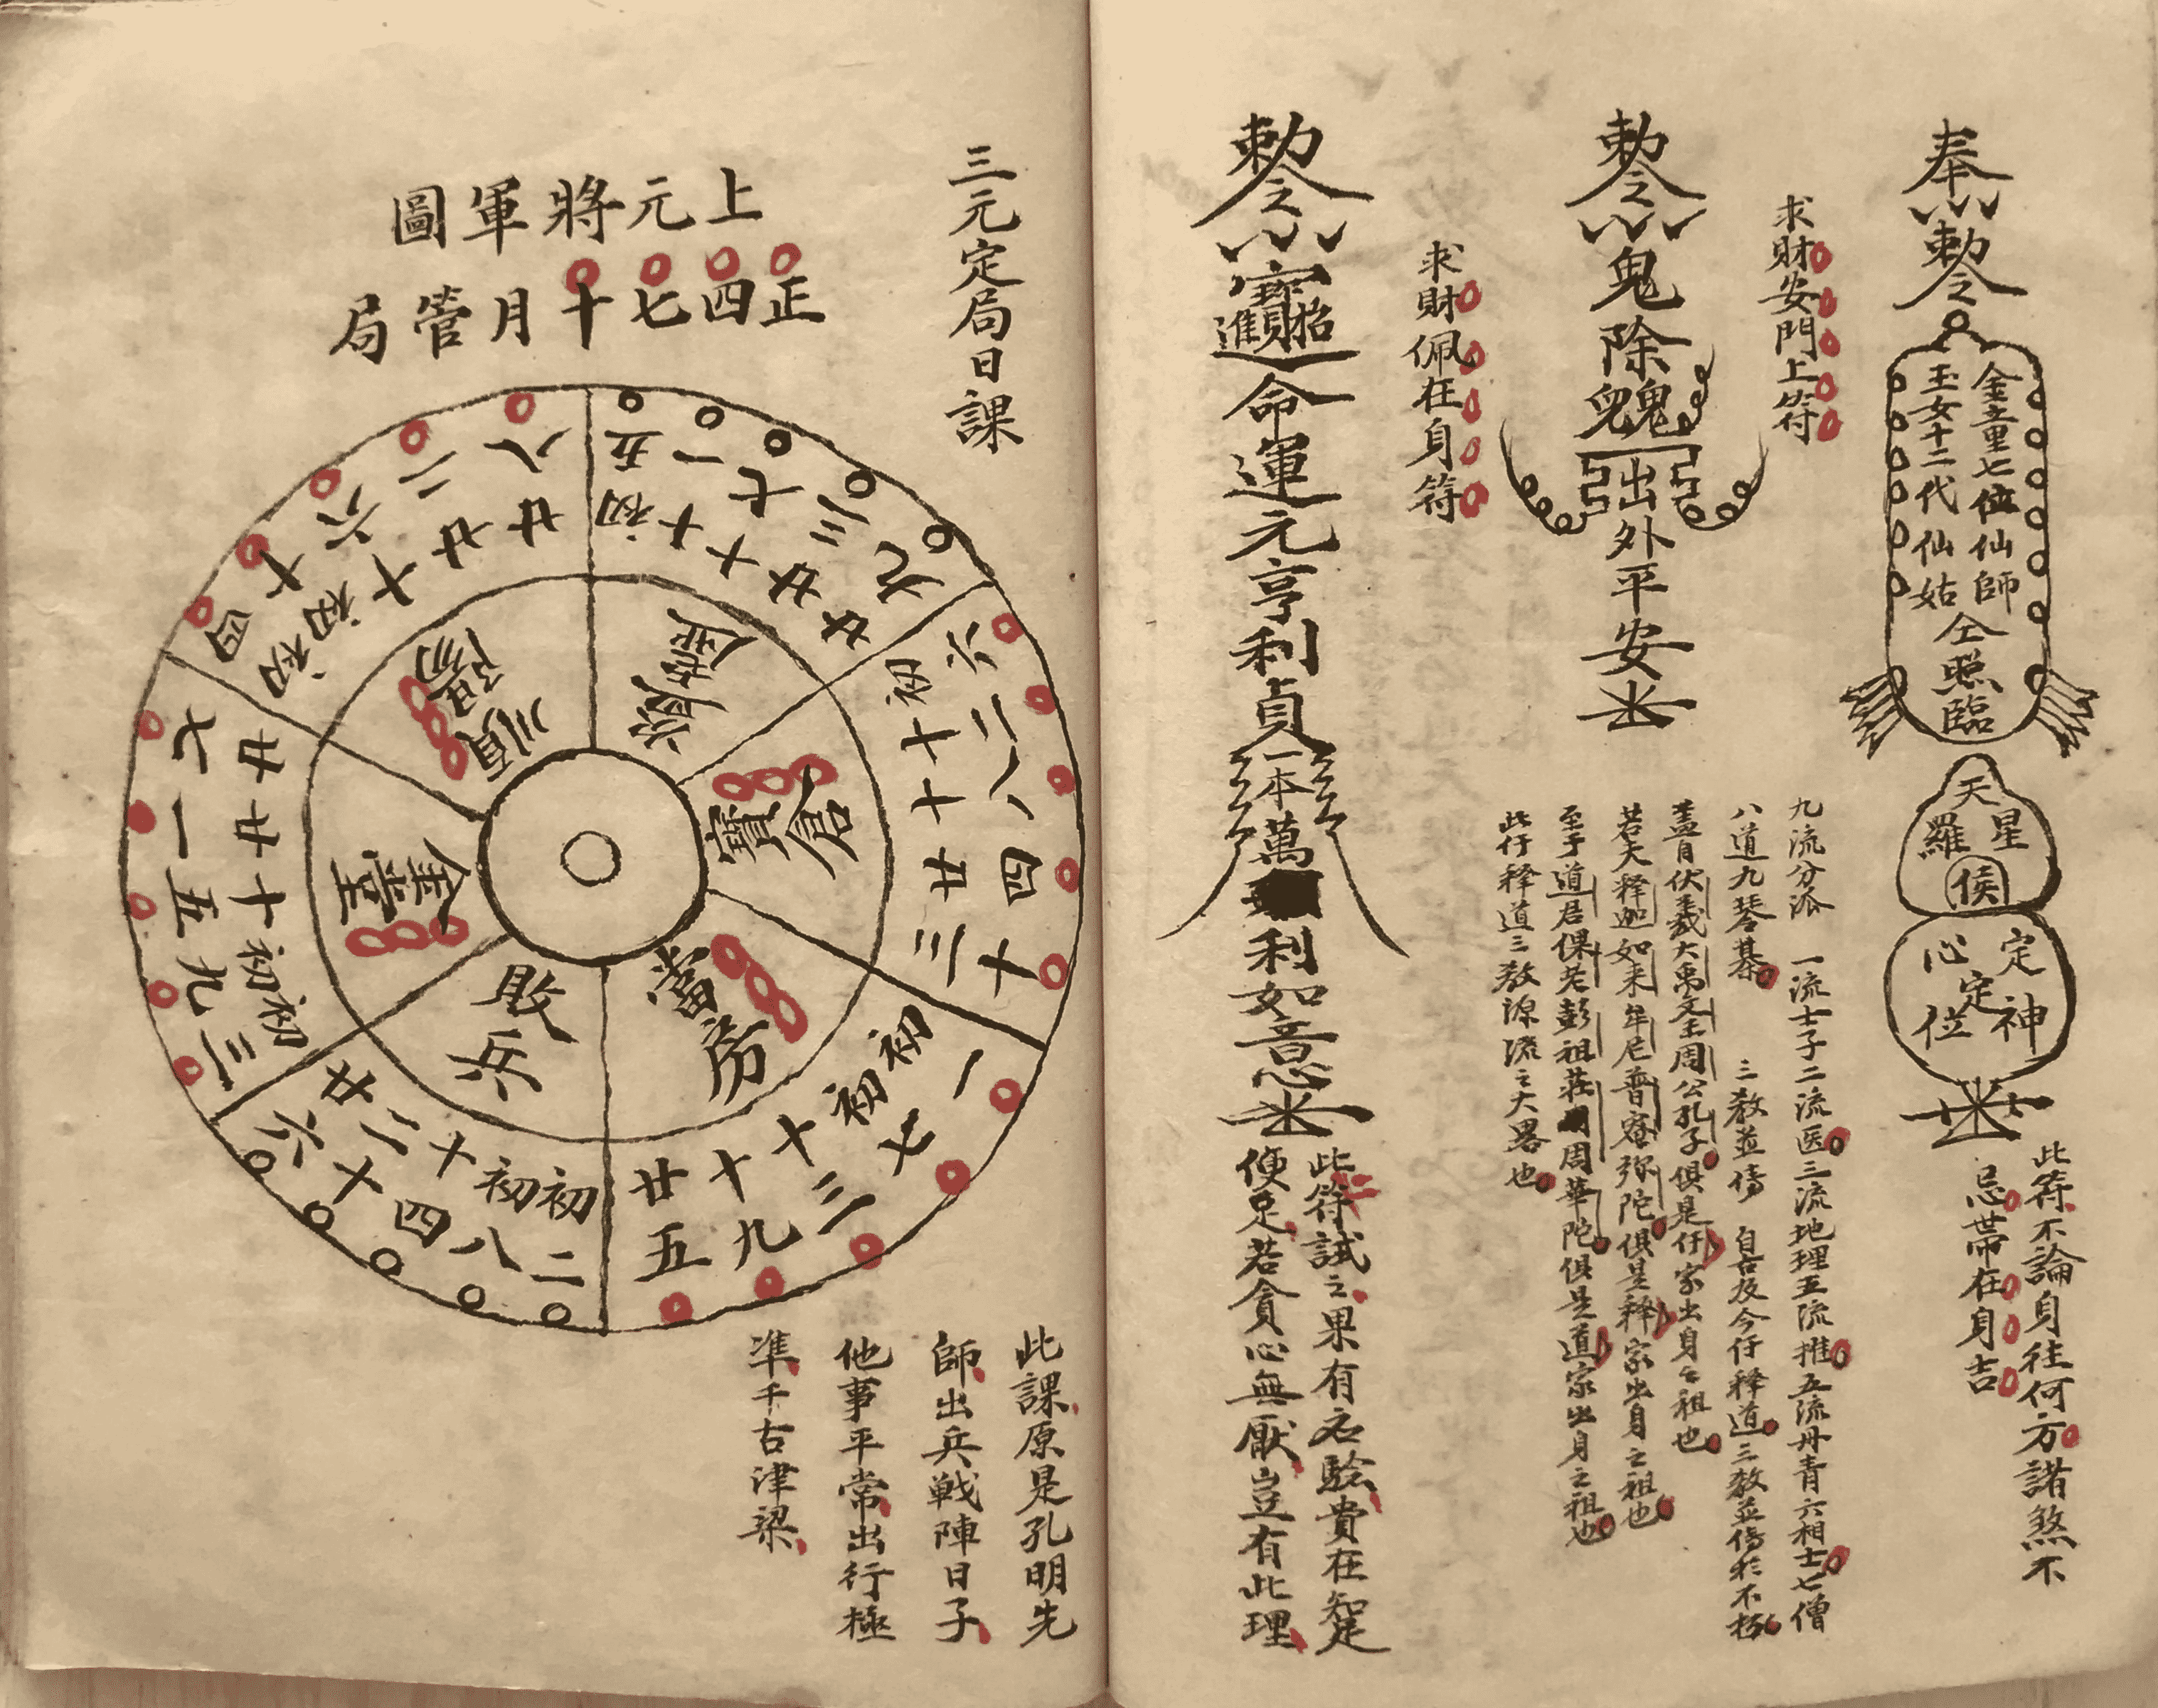 奉
敕令
金童七位仙師
玉女十二代仙姑
仝照臨
天
羅星
侯
定神
心定位
此符不論身往何方諸煞不
忌帶在身吉
求財安門上符
敕令
鬼除
出外平安
九流分派 一流士子二流医三流地理五流推五流丹青六相士七僧
八道九琴棋 三教並傳 自古及今仔释道三教並傳於不朽
盖自伏羲大禹文王周公孔子俱是仔家出身之祖也
若夫释迦如来牟尼普庵弥陀俱是释家出身之祖也
至于道君倮老彭祖莊周華陀俱是道家出身之祖也
此仔释道三教源流之大畧也
求財佩在身符
敕令
招財進寶
命運元亨利貞
一本萬利如意
此符試之果有灵驗貴在知足
便足若貪心無厭豈有此理
三元定局日課
上元將軍圖
正四七十月管局
初五 十一 十七 廿三 廿九
金散
初六 十二 十八 廿四 三十
倉寶
初一 初七 十三 十九 廿五
當房
初二 初八 十四 二十 廿六
敗兵
初三 初九 十五 廿一 廿七
金堂
初四 初十 十六 廿二 廿八
順陽
此課原是孔明先
師出兵戰陣日子
他事平常出行極
準千古津梁